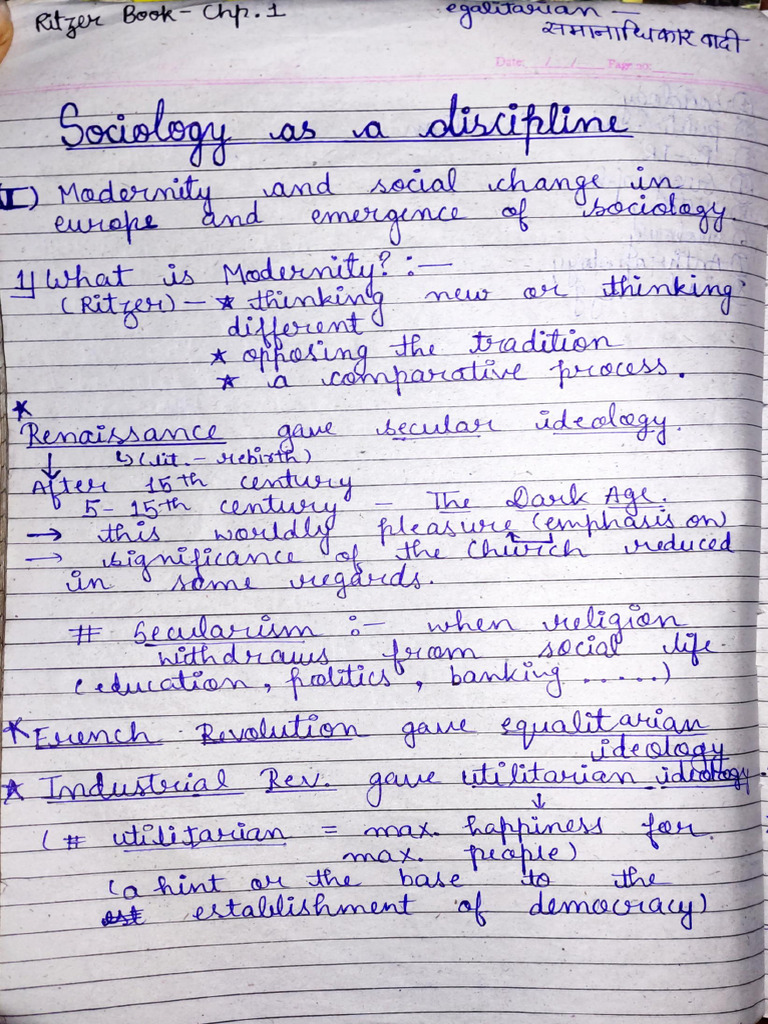 Ritzer Book - Chp. 1
egalitarian -
समानाधिकार वादी
Date: / / Page no:
Sociology as a discipline
I) Modernity and social change in
europe and emergence of sociology.
1) What is Modernity? :-
(Ritzer) - * thinking new or thinking
different
* opposing the tradition
* a comparative process.
*
Renaissance gave secular ideology.
↳ (lit. - rebirth)
↓
After 15th century
5 - 15th century - The Dark Age.
→ this worldly pleasure (emphasis on)
→ significance of the Church reduced
in some regards.
# Secularism :- when religion
withdraws from social life.
(education, politics, banking ......)
* French Revolution gave equalitarian
ideology
* Industrial Rev. gave utilitarian ideology.
↓
(# utilitarian = max. happiness for
max. people)
(a hint or the base to the
establishment of democracy)